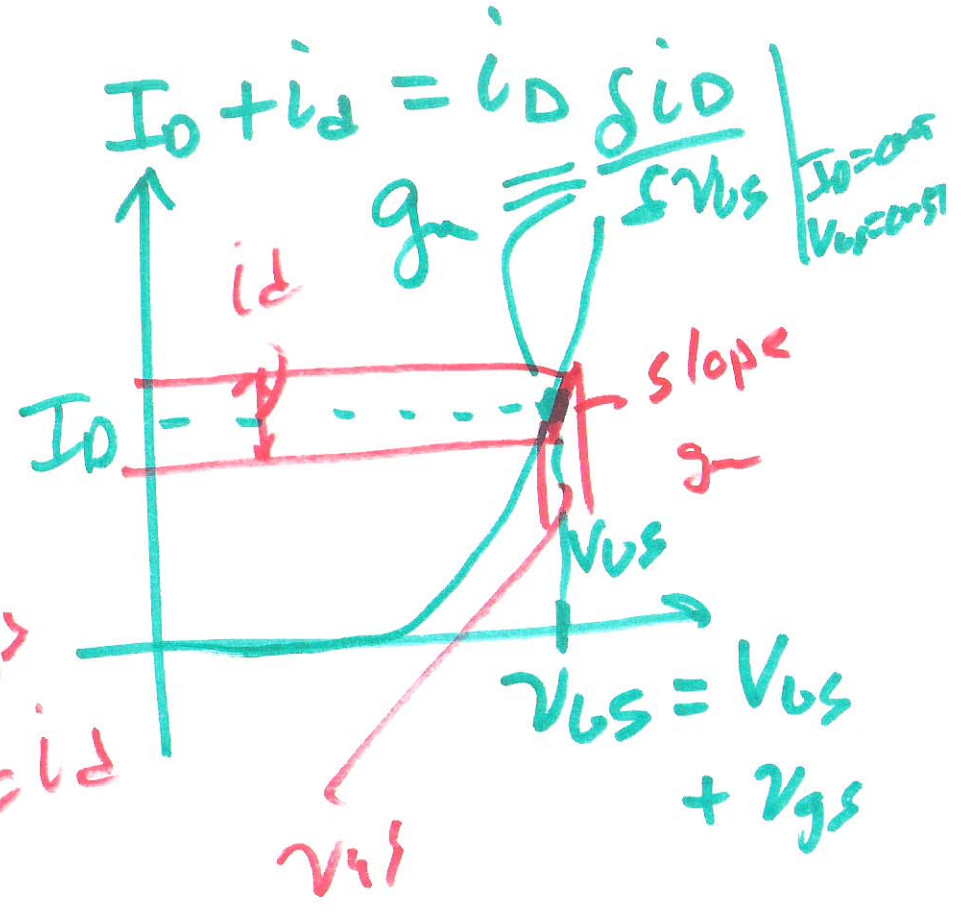 I_D + i_d = i_D
g_m ≡ δi_D / δv_GS | I_D=const V_GS=const
i_d
I_D
slope
g_m
V_GS
v_GS = V_GS
+ v_gs
i_d
v_gs